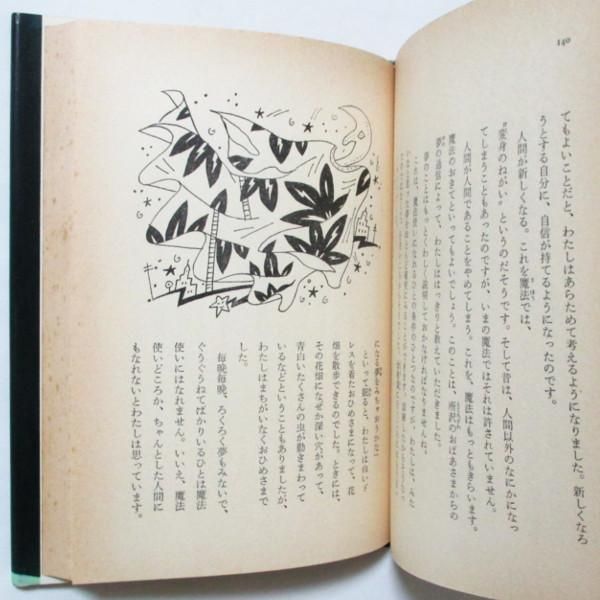 140
てもよいことだと、わたしはあらためて考えるようになりました。新しくなろ
うとする自分に、自信が持てるようになったのです。
人間が新しくなる。これを魔法では、
“変身のねがい”というのだそうです。そして昔は、人間以外のなにかになっ
てしまうこともあったのですが、いまの魔法ではそれは許されていません。
人間が人間であることをやめてしまう。これを、魔法はもっともきらいます。
魔法のおきてといってもよいでしょう。このことは、所沢のおばあさまからの
夢の通信によって、わたしははっきりと教えていただきました。
夢のことはも っとくわしく説明しておかなければなりませんね。
これは、魔法使いになれるひとの条件のひとつなのですが、わたしは、みた
になる夢をみちゃおうかな」
といって眠ると、わたしは白いド
レスを着たおひめさまになって、花
畑を散歩できるのでした。ときには、
その花畑になぜか深い穴があって、
青白いたくさんの虫が動きまわって
いるなどということもありましたが、
わたしはまちがいなくおひめさまで
した。
毎晩毎晩、ろくろく夢もみないで、
ぐうぐうねてばかりいるひとは魔法
使いにはなれません。いいえ、魔法
使いどころか、ちゃんとした人間に
もなれないとわたしは思っています。